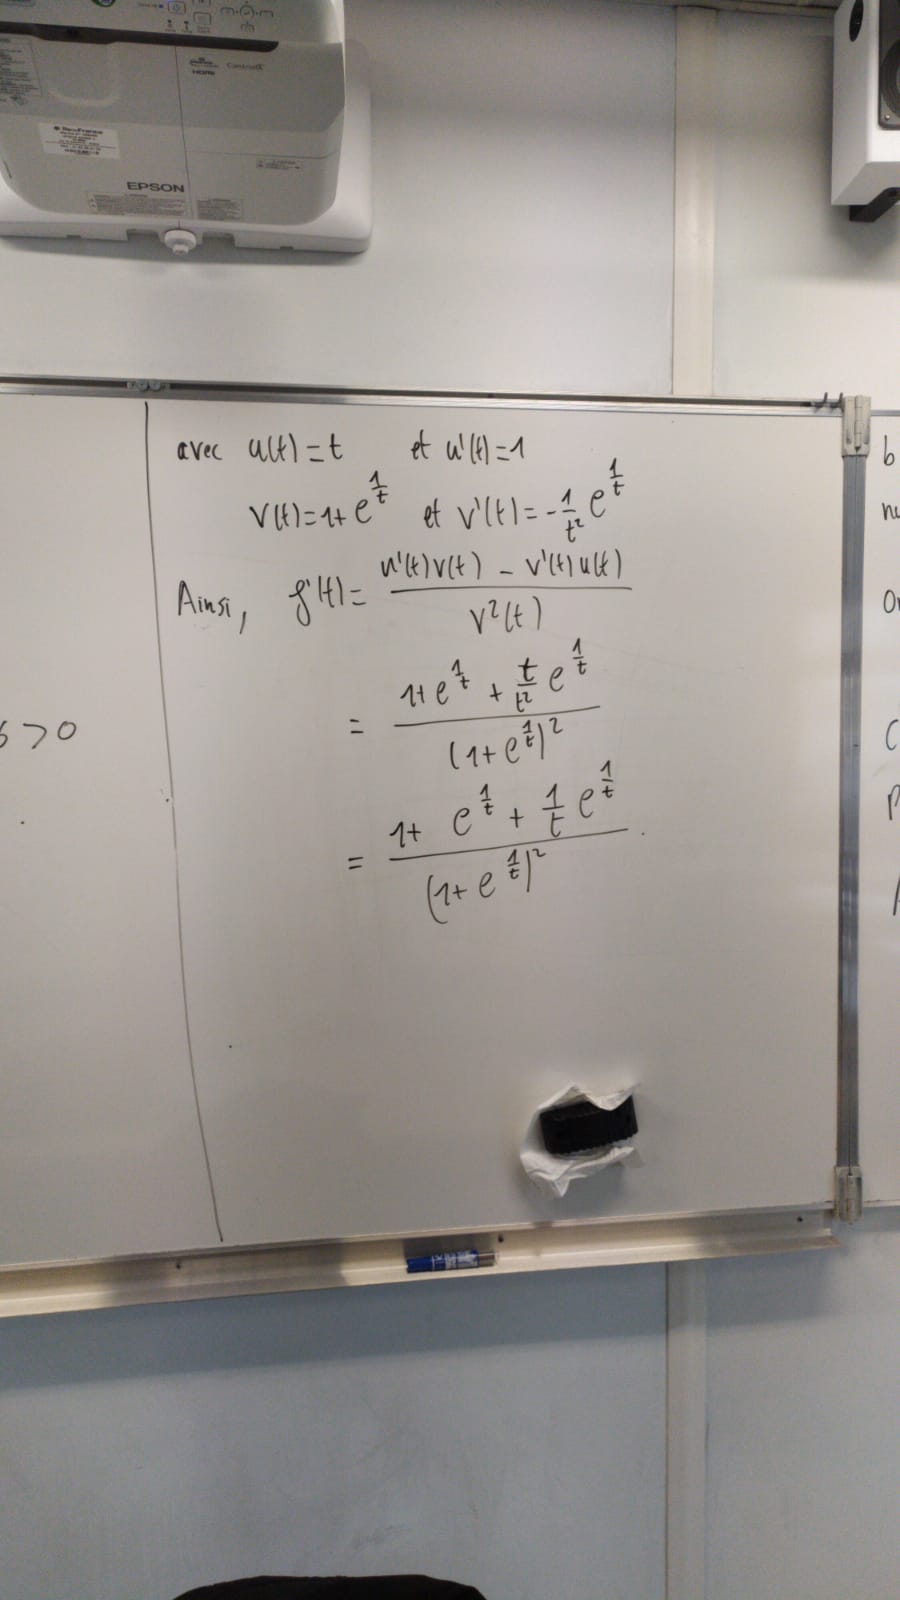 EPSON
HDMI
avec u(t) = t et u'(t) = 1
v(t) = 1 + e^{1/t} et v'(t) = - 1/t² e^{1/t}
Ainsi, f'(t) = (u'(t) v(t) - v'(t) u(t)) / v²(t)
= (1 + e^{1/t} + t/t² e^{1/t}) / (1 + e^{1/t})²
> 0
= (1 + e^{1/t} + 1/t e^{1/t}) / (1 + e^{1/t})².